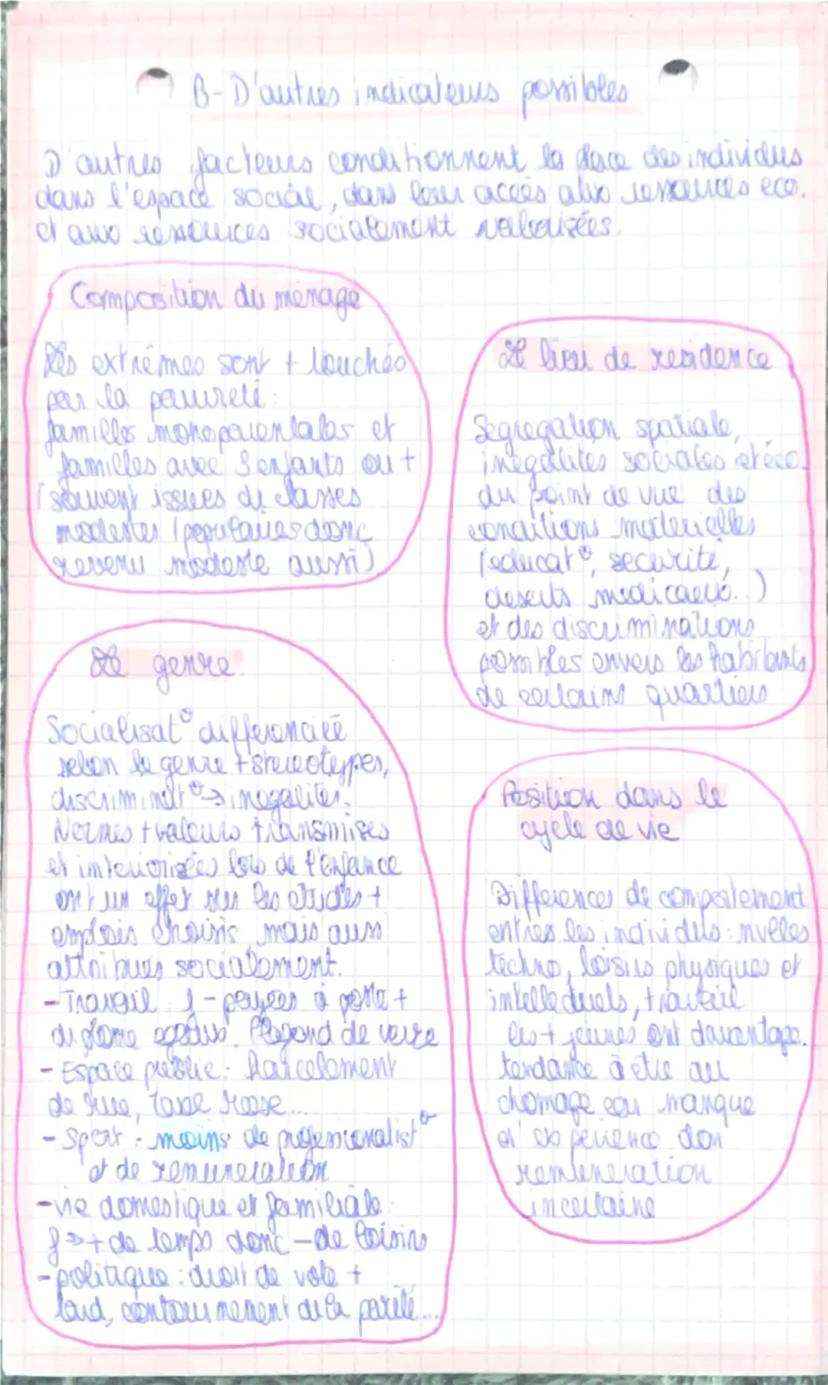 B-D'autres indicateurs possibles
D'autres facteurs conditionnent la place des individus
dans l'espace social, dans leur accès aux ressources eco.
et aux ressources socialement valorisées.
Composition du ménage
Les extrêmes sont + touchés
par la pauvreté:
familles monoparentales et
familles avec 3 enfants ou +
(souvent issues de classes
modestes (populaires donc
revenu modeste aussi)
Le lieu de residence
Segregation spatiale,
inegalités sociales et éco.
du point de vue des
conditions materielles
(educat°, securité,
deserts medicaux..)
et des discriminations
possibles envers les habitants
de certains quartiers
Le genre
Socialisat° différenciée
selon le genre + stereotypes,
discriminat° → inegalités.
Normes + valeurs transmises
et interiorisées lors de l'enfance
ont un effet sur les etudes +
emplois choisis mais aussi
attribués socialement.
- Travail : f - payées à poste +
diplome egaux. Plafond de verre
- Espace public: Harcelement
de rue, Taxe rose...
- Sport : moins de professionalist°
et de remuneration
- vie domestique et familiale:
f → + de temps donc - de loisirs
- politique : droit de vote +
tard, contournement de la parité...
Position dans le
cycle de vie
Differences de comportement
entres les individus : nvelles
techno, loisirs physiques et
intellectuels, travail
les + jeunes ont davantage.
tendance à etre au
chomage car manque
d'experience don
remuneration
incertaine